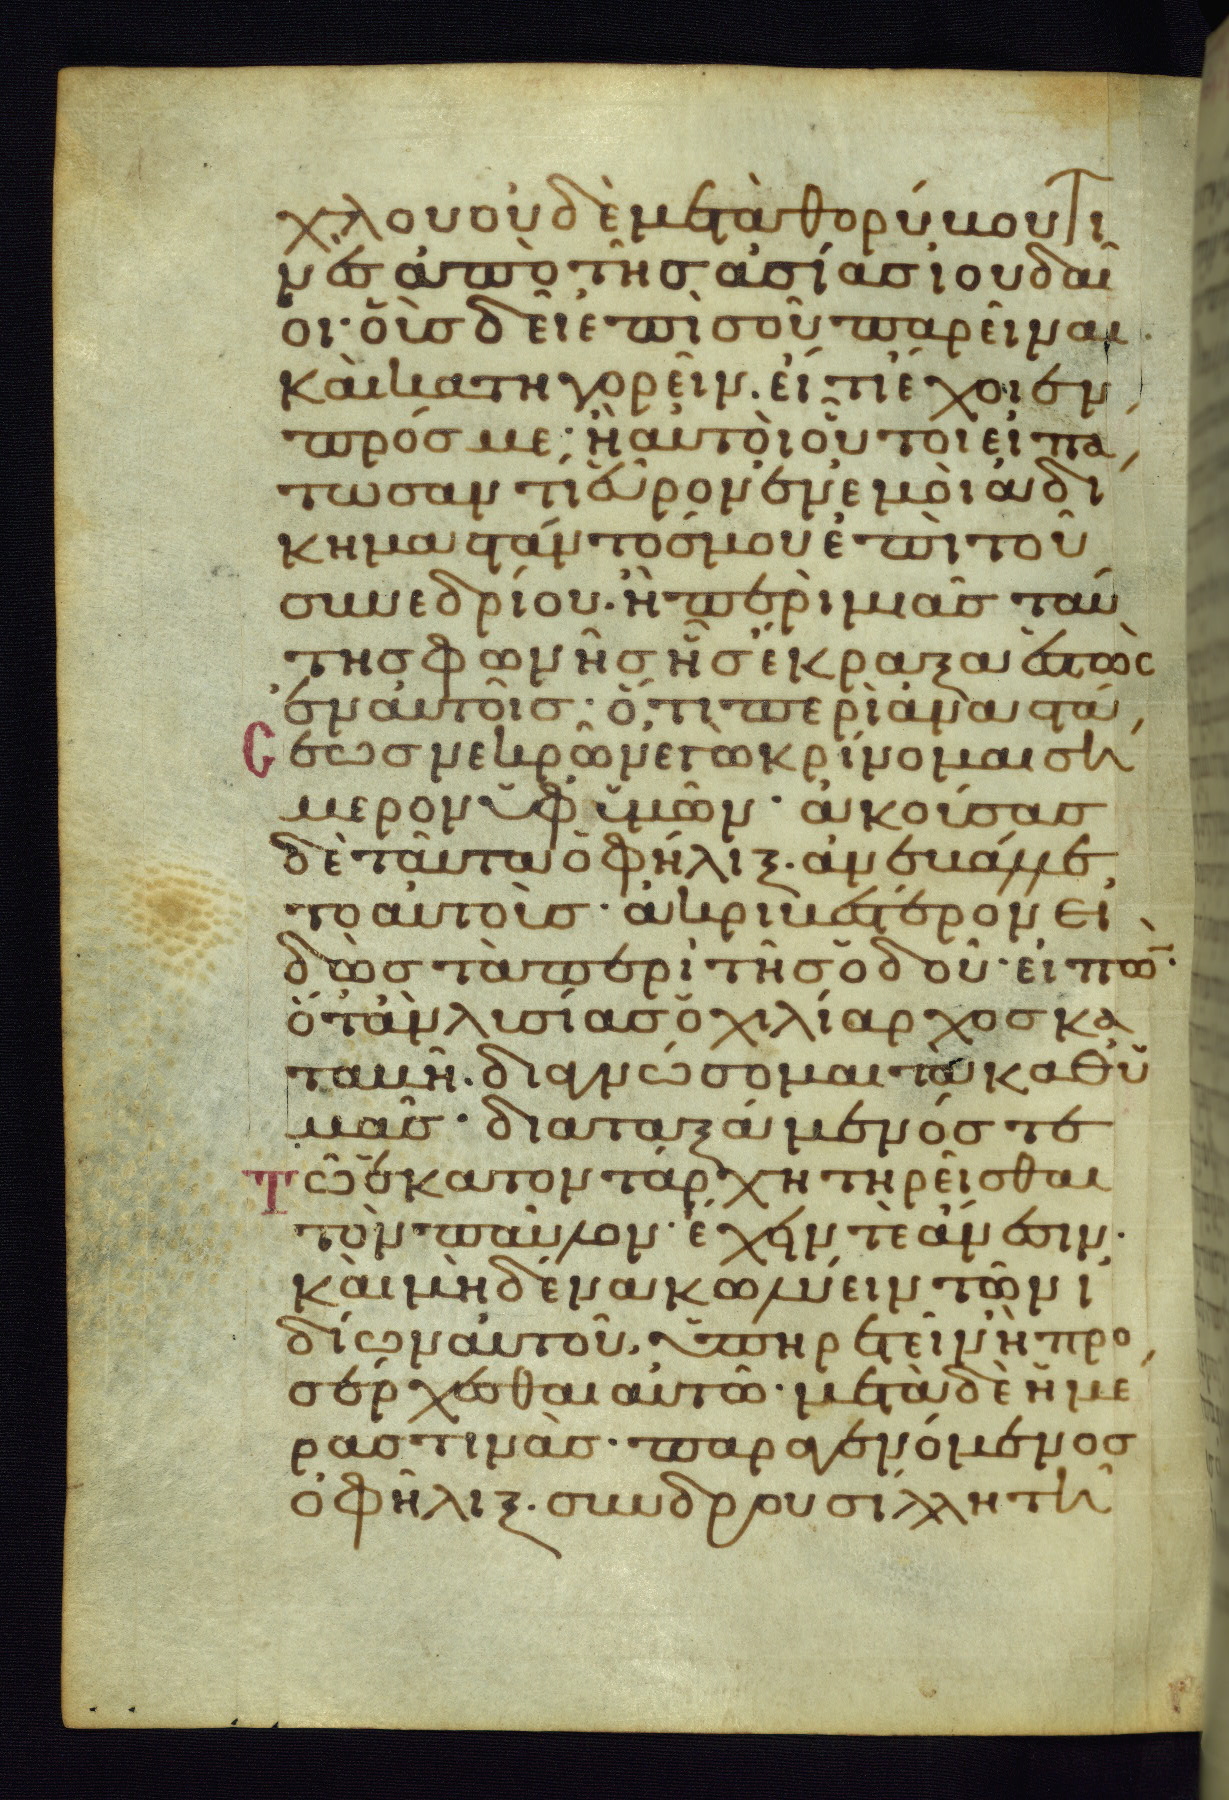 χλου οὐδὲ μετὰ θορύβου τι
νὲς ἀπὸ τῆς ἀσίας ἰουδαῖ
οι· οὓς δεῖ ἐπὶ σοῦ παρεῖναι
καὶ κατηγορεῖν. εἴ τι ἔχοιεν
πρός με· ἢ αὐτοὶ οὗτοι εἰπα
τωσαν τί εὗρον ἐν ἐμοὶ ἀδί
κημα στάντος μου ἐπὶ τοῦ
συνεδρίου· ἢ περὶ μιᾶς ταύ
της φωνῆς ἧς ἔκραξα ἑστὼς
ἐν αὐτοῖς· ὅτι περὶ ἀναστά
σεως νεκρῶν ἐγὼ κρίνομαι σή
μερον ὑφ ὑμῶν· ἀκούσας
δὲ ταῦτα ὁ φήλιξ. ἀνεβάλλε
το αὐτοὺς· ἀκριβέστερον εἰ
δὼς τὰ περὶ τῆς ὁδοῦ· εἰπὼν·
ὅταν λυσίας ὁ χιλίαρχος κα
ταβῇ. διαγνώσομαι τὰ καθ ὑ
μᾶς· διαταξάμενός τε
τῷ ἑκατοντάρχῃ τηρεῖσθαι
τὸν παῦλον· ἔχειν τε ἄνεσιν·
καὶ μηδένα κωλύειν τῶν ἰ
δίων αὐτοῦ, ὑπηρετεῖν ἢ προ
σέρχεσθαι αὐτῷ· μετὰ δὲ ἡμέ
ρας τινὰς· παραγενόμενος
ὁ φῆλιξ. σὺν δρουσίλλῃ τῇ